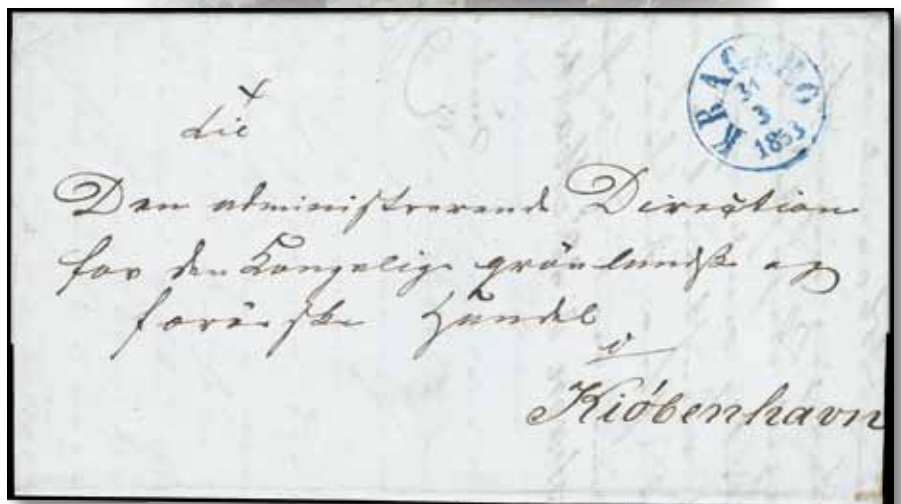 KRAGERØ
3
1853
Den administrerende Direction
for den Kongelige grönlandske og
færöiske Handel
i
Kiöbenhavn